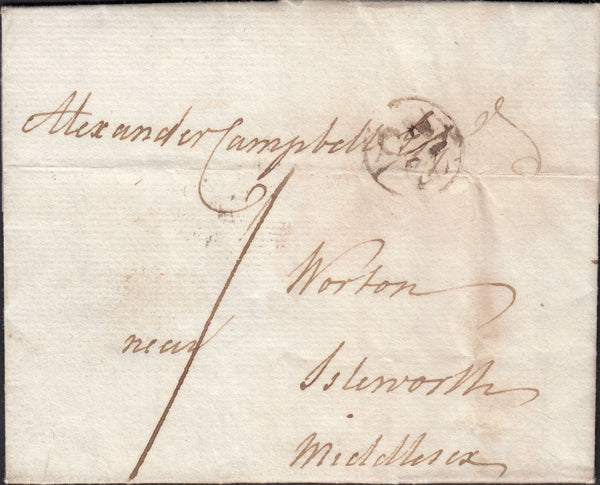 Alexander Campbell
Worton
near
Isleworth
Middlesex